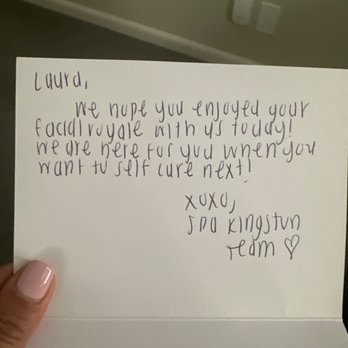 Laura,
We hope you enjoyed your
facial royale with us today!
We are here for you when you
want to self care next!
xoxo,
Spa Kingston
Team ♡